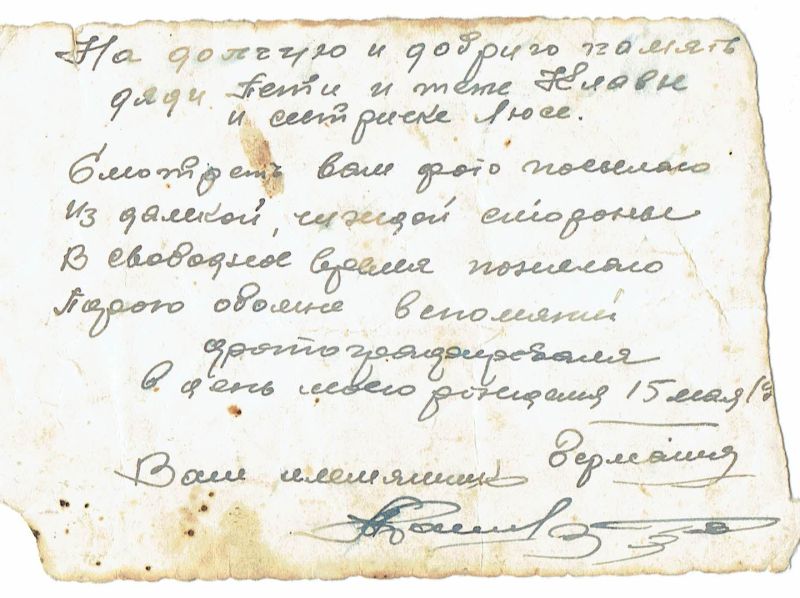 На долгую и добрую память
дяди Пети и тети Клавы
и систриске Люсе.
Смотреть вам фото посылаю
Из далекой, чуждой стороны
В свободное время пожелаю
Порою обомне вспомяни
фотографировался
в день моего рождения 15 мая 19
Германия
Ваш племянник